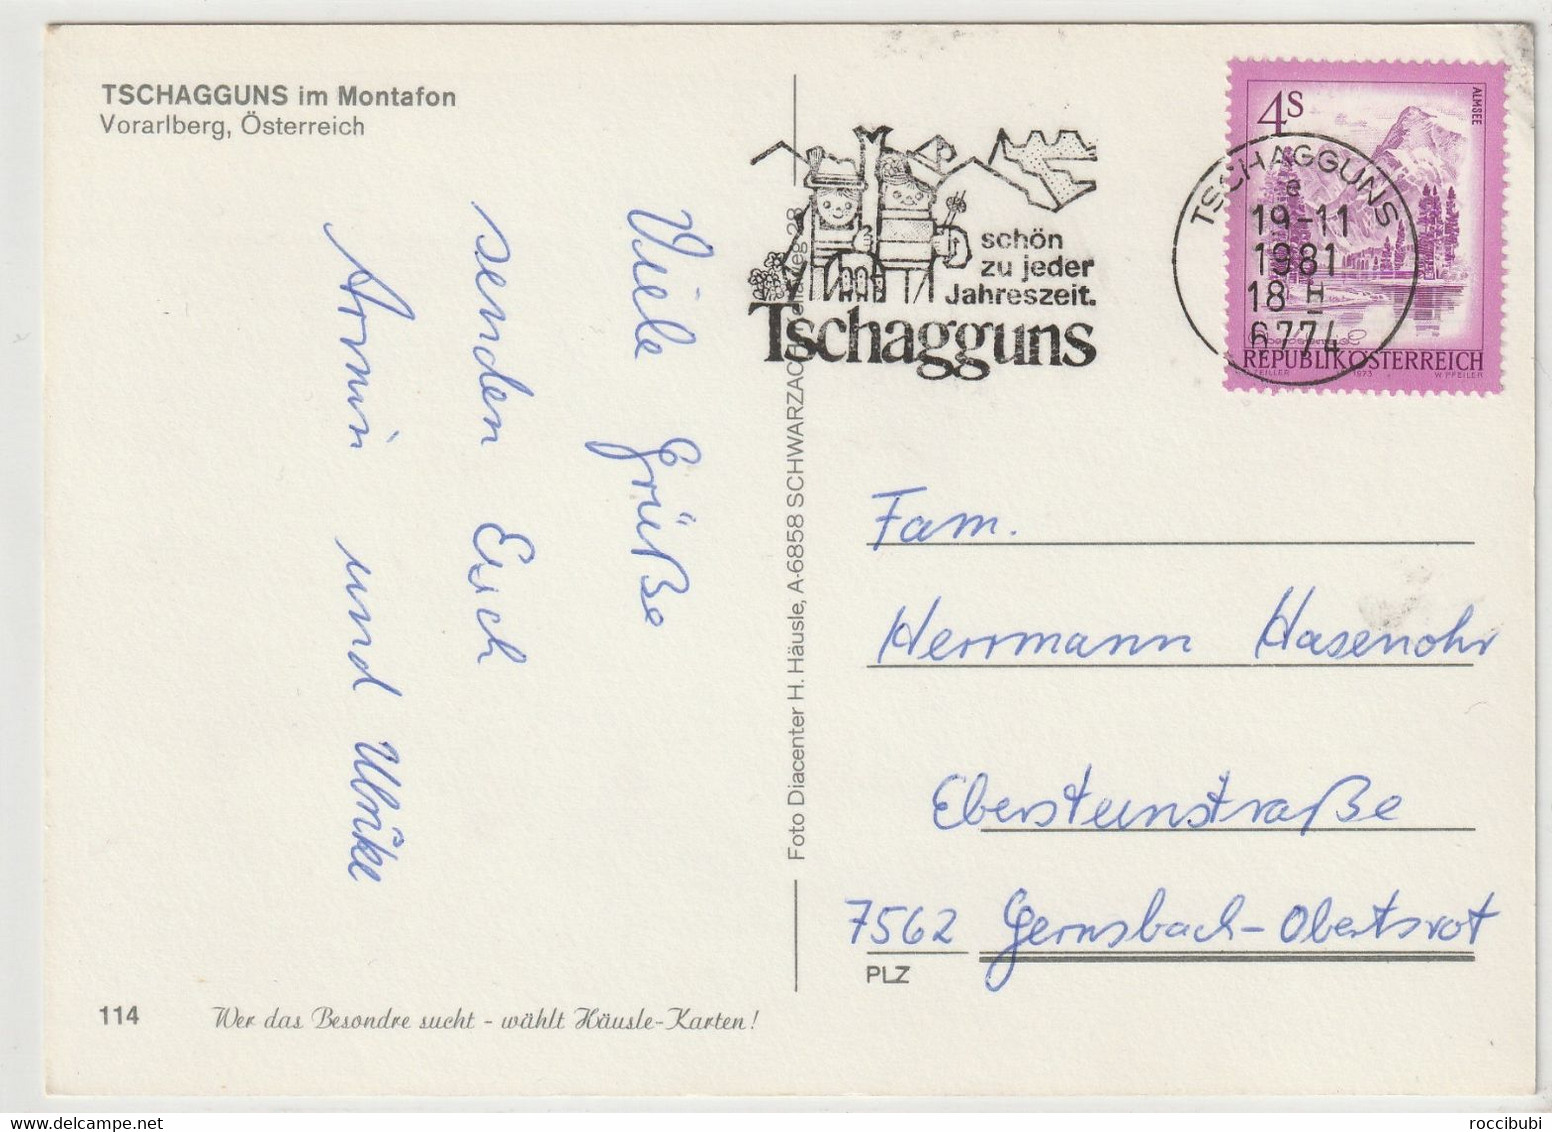 TSCHAGGUNS im Montafon
Vorarlberg, Österreich
Viele Grüße
senden Euch
Armin und Ulrike
114
Wer das Besondre sucht - wählt Häusle-Karten!
Foto Diacenter H. Häusle, A-6858 SCHWARZACH
weg 28
schön
zu jeder
Jahreszeit.
Tschagguns
TSCHAGGUNS
e
19-11
1981
18 H
6774
4S
ALMSEE
REPUBLIK ÖSTERREICH
1973
W. PFEILER
Fam.
Herrmann Hasenohr
Ebersteinstraße
7562 Gernsbach-Obertsrot
PLZ
roccibubi